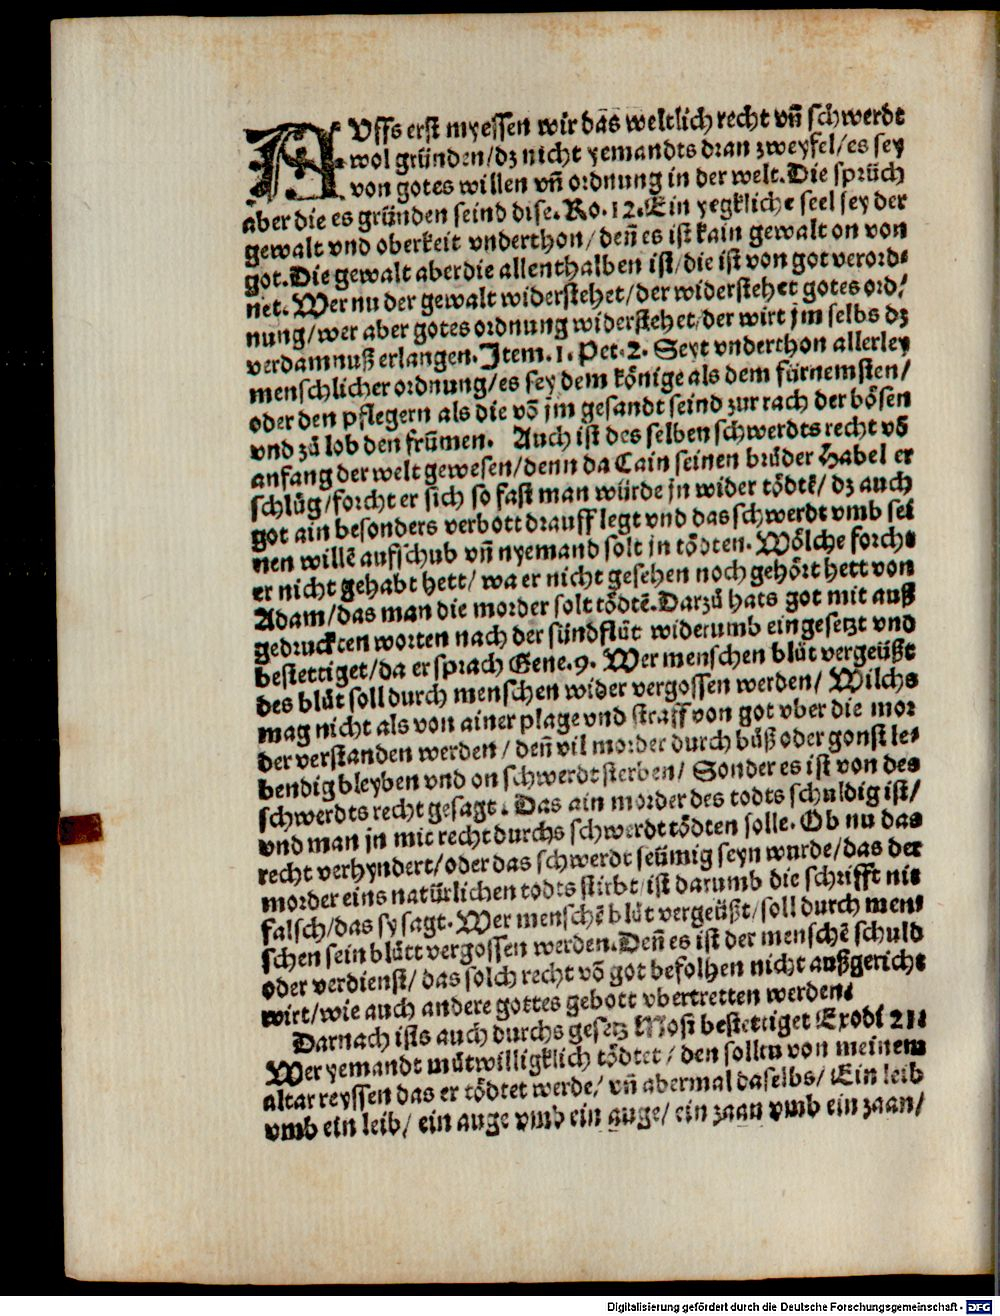 AUffs erst myessen wir das weltlich recht vñ schwerdt
wol gründen/dz nicht yemandts dran zweyfel/es sey
von gotes willen vñ ordnung in der welt. Die sprüch
aber die es gründen seind dise. Ro. 12. Ein yegkliche seel sey der
gewalt vnd oberkeit vnderthon/ deñ es ist kain gewalt on von
got. Die gewalt aber die allenthalben ist/die ist von got verord⸗
net. Wer nu der gewalt widerstehet/der widerstehet gotes ord⸗
nung/wer aber gotes ordnung widerstehet/der wirt jm selbs dz
verdamnuß erlangen. Item. 1. Pet. 2. Seyt vnderthon allerley
menschlicher ordnung/es sey dem könige als dem fürnemsten/
oder den pflegern als die võ jm gesandt seind zur rach der bösen
vnd zů lob den frům̃en. Auch ist des selben schwerdts recht võ
anfang der welt gewesen/denn da Cain seinen brůder Habel er
schlůg/forcht er sich so fast man würde jn wider tödtẽ/ dz auch
got ain besonders verbott drauff legt vnd das schwerdt vmb sei
nen willẽ auffschub vñ nyemand solt jn tödten. Wölche forcht
er nicht gehabt hett/ wa er nicht gesehen noch gehört hett von
Adam/das man die morder solt tödtẽ. Darzů hats got mit auß
gedruckten worten nach der sündflůt widerumb eingesetzt vnd
bestettiget/da er sprach Gene. 9. Wer menschen blůt vergeüßt
des blůt soll durch menschen wider vergossen werden/ Wilchs
mag nicht als von ainer plage vnd straff von got vber die mor
der verstanden werden/ deñ vil morder durch bůß oder gonst le⸗
bendig bleyben vnd on schwerdt sterben/ Sonder es ist von des
schwerdts recht gesagt. Das ain morder des todts schuldig ist/
vnd man jn mit recht durchs schwerdt tödten solle. Ob nu das
recht verhyndert/oder das schwerdt seümig seyn wurde/das der
morder eins natürlichen todts stirbt/ist darumb die schrifft nit
falsch/das sy sagt. Wer menschẽ blůt vergeüßt/soll durch men⸗
schen sein blůtt vergossen werden. Deñ es ist der menschẽ schuld
oder verdienst/ das solch recht võ got befolhen nicht außgericht
wirt/wie auch andere gottes gebott vbertretten werden.
Darnach ists auch durchs gesetz Mosi bestettiget Exodi 21.
Wer yemandt můtwilligklich tödtet/ den solltu von meinem
altar reyssen das er tödtet werde/ vñ abermal daselbs/ Ein leib
vmb ein leib/ ein auge vmb ein auge/ ein zaan vmb ein zaan/
Digitalisierung gefördert durch die Deutsche Forschungsgemeinschaft - DFG